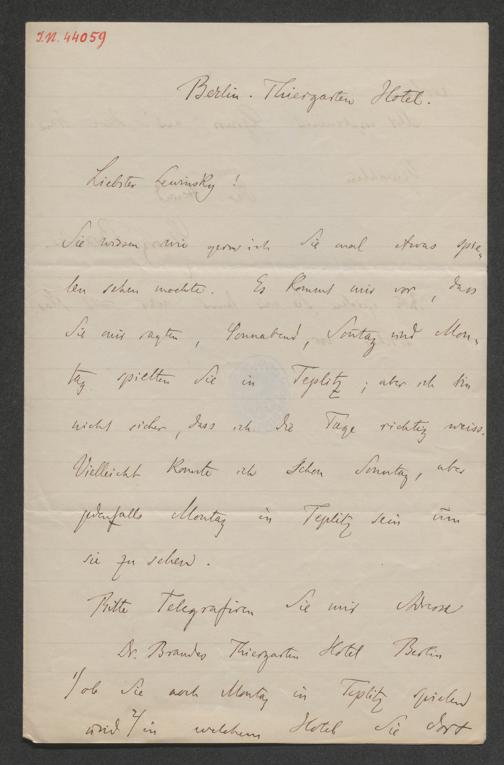 I.N. 44059
Berlin. Thiergarten Hotel.
Liebster Lewinsky!
Sie wissen wie gerne ich Sie mal etwas spie-
len sehen möchte. Es kommt mir vor, dass
Sie mir sagten, Sonnabend, Sontag und Mon-
tag spielten Sie in Teplitz; aber ich bin
nicht sicher, dass ich die Tage richtig weiss.
Vielleicht konnte ich schon Sonntag, aber
jedenfalls Montag in Teplitz sein um
sie zu sehen.
Bitte Telegrafiren Sie mir Adresse
Dr. Brandes Thiergarten Hotel Berlin
1/ ob Sie noch Montag in Teplitz spielen
und 2/ in welchem Hotel Sie dort